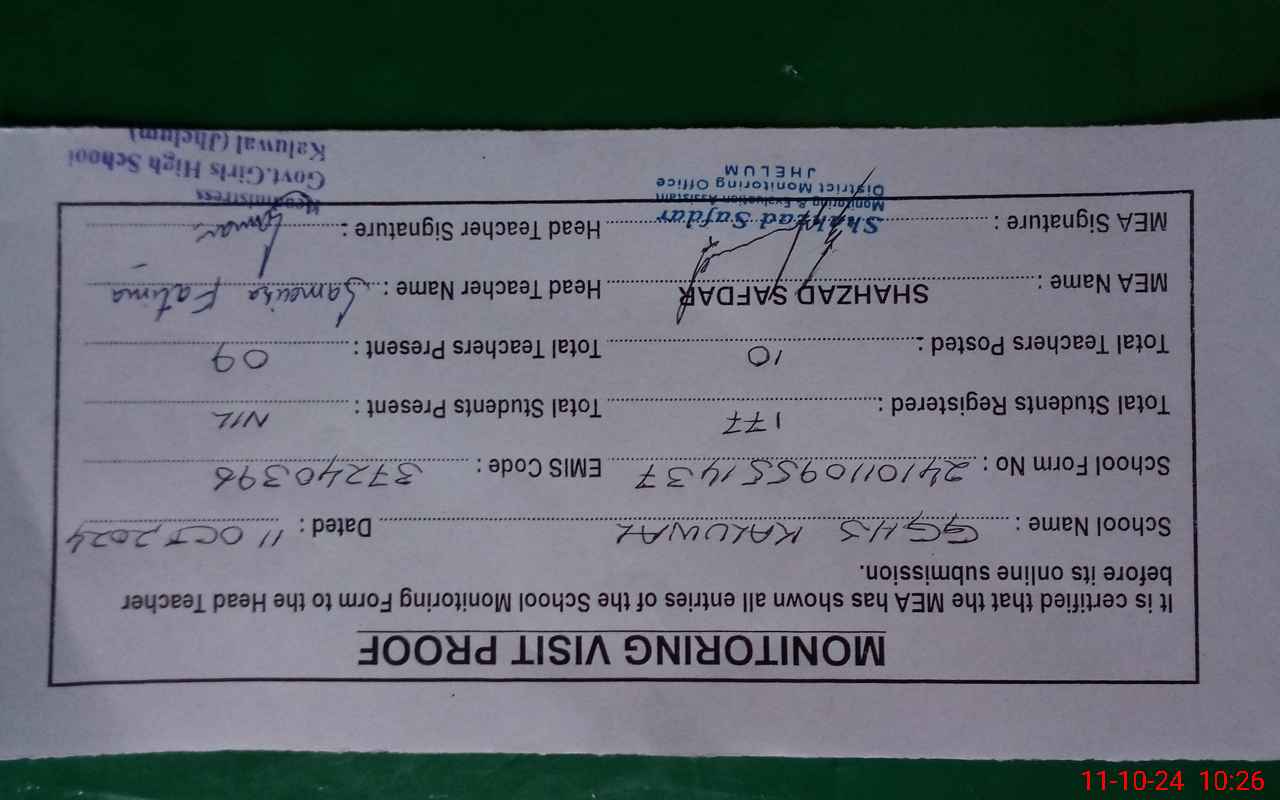 MONITORING VISIT PROOF
It is certified that the MEA has shown all entries of the School Monitoring Form to the Head Teacher
before its online submission.
School Name : GGHS KALUWAL Dated : 11 OCT, 2024
School Form No : 24101109551437 EMIS Code : 37240396
Total Students Registered : 177 Total Students Present : NIL
Total Teachers Posted : 10 Total Teachers Present : 09
MEA Name : SHAHZAD SAFDAR Head Teacher Name : Sameira Fatima
MEA Signature : Shahzad Safdar Head Teacher Signature :
Monitoring & Evaluation Assistant
District Monitoring Office
JHELUM
Headmistress
Govt.Girls High School
Kaluwal (Jhelum)
11-10-24 10:26